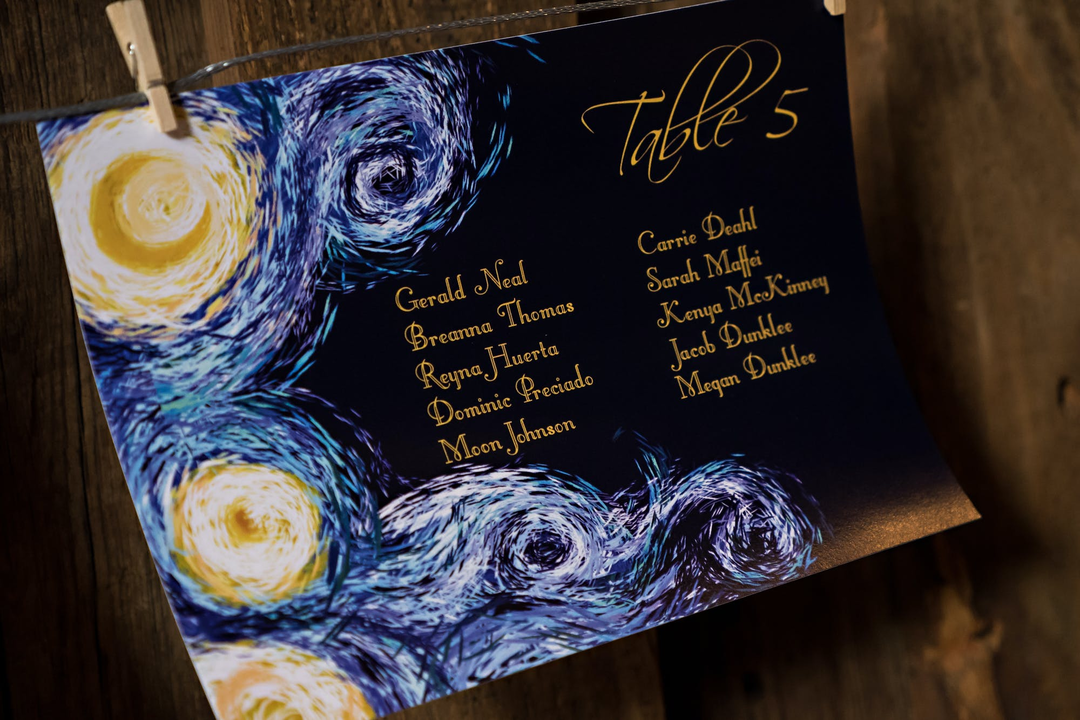 Table 5
Gerald Neal
Breanna Thomas
Reyna Huerta
Dominic Preciado
Moon Johnson
Carrie Deahl
Sarah Maffei
Kenya McKinney
Jacob Dunklee
Megan Dunklee